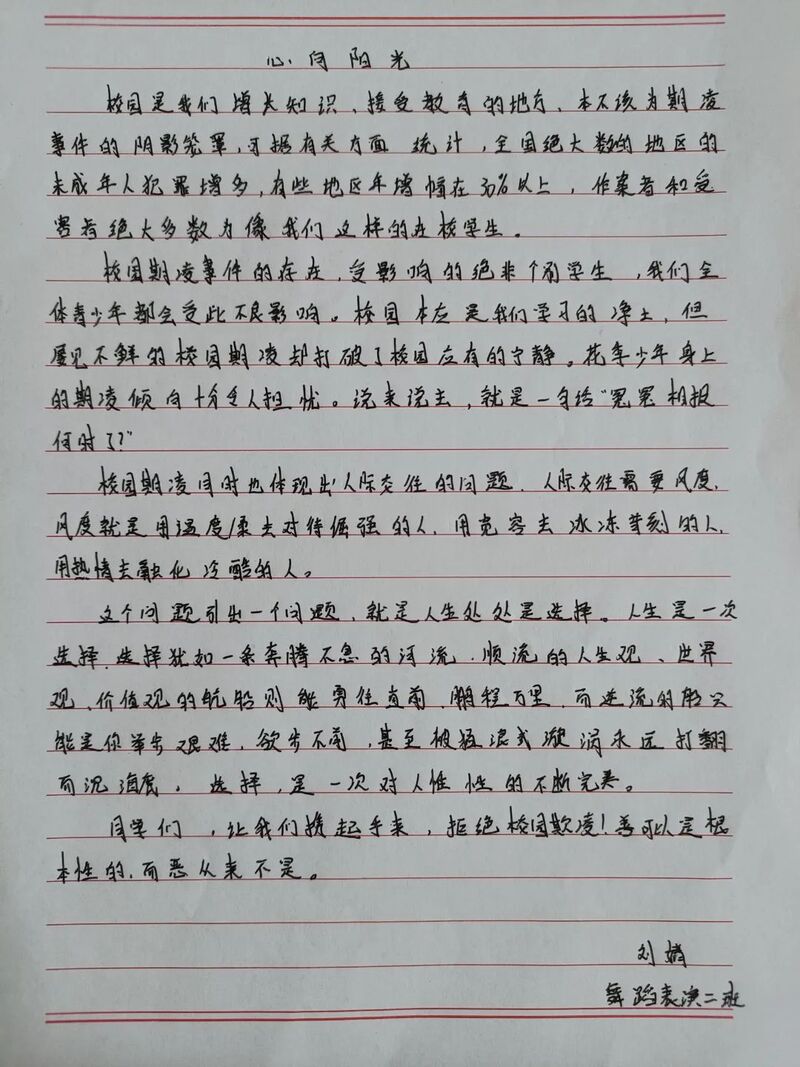 心向阳光
校园是我们增长知识、接受教育的地方、本不该为期凌
事件的阴影笼罩,可据有关方面统计,全国绝大数的地区的
未成年人犯罪增多,有些地区年增幅在30%以上,作案者和受
害者绝大多数为像我们这样的在校学生。
校园期凌事件的存在,受影响的绝非个别学生,我们全
体青少年都会受此不良影响。校园本应是我们学习的净土,但
屡见不鲜的校园期凌却打破了校园应有的宁静。花季少年身上
的期凌倾向十分令人担忧。说来说去,就是一句给“冤冤相报
何时了?”
校园期凌同时也体现出人际交往的问题.人际交往需要风度,
风度就是用温度/柔去对待倔强的人,用宽容去冰冻苛刻的人,
用热情去融化冷酷的人。
这个问题引出一个问题,就是人生处处是选择。人生是一次
选择,选择犹如一条奔腾不息的河流.顺流的人生观、世界
观、价值观的航船则能勇往直前,鹏程万里,而逆流的船只
能是你举步艰难,欲步不前,甚至被猛浪或漩涡永远打翻
而沉海底,选择,是一次对人性性的不断完美。
同学们,让我们携起手来,拒绝校园欺凌!善可以是根
本性的,而恶从来不是。
刘婧
舞蹈表演二班